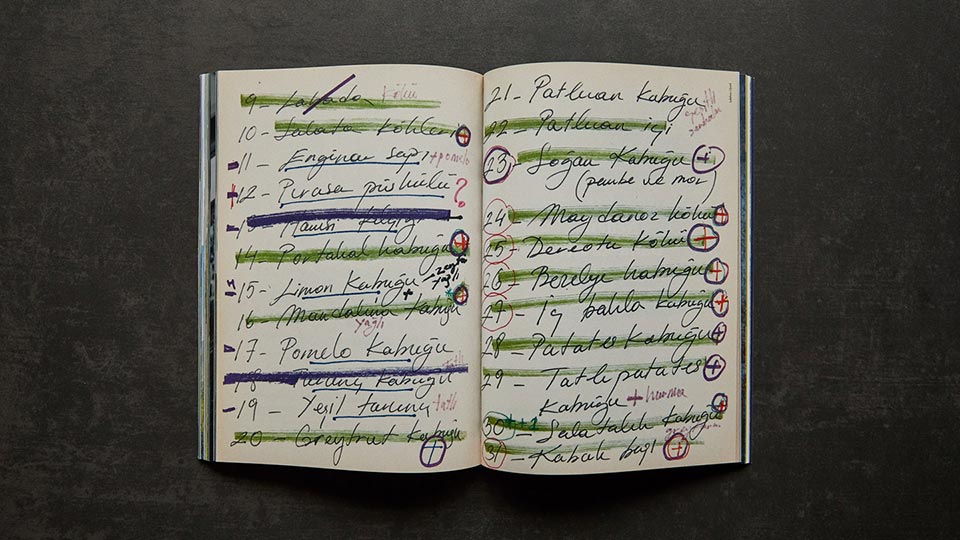 9 - Labada kökü
10 - Salata kökleri
11 - Enginar sapı + pomelo
12 - Pırasa püskülü ?
13 - Hamsi kılçığı
14 - Portakal kabuğu
15 - Limon Kabuğu
16 - Mandalina kabuğu
yağlı
17 - Pomelo Kabuğu
18 - Turunç Kabuğu tatlı
19 - Yeşil turunç tatlı
20 - Greyfrut kabuğu
21 - Patlıcan Kabuğu
22 - Patlıcan içi
23 - Soğan Kabuğu
(pembe ve mor)
24 - Maydanoz kökü
25 - Dereotu Kökü
26 - Bezelye kabuğu
27 - İç bakla kabuğu
28 - Patates Kabuğu
29 - Tatlı patates
Kabuğu + hurma
30 - Salatalık kabuğu
31 - Kabak başı